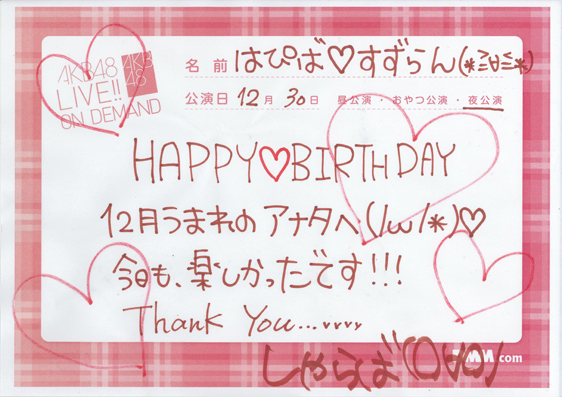 AKB48
LIVE!!
ON DEMAND
AKB
48
名前 はぴば♡すずらん(*≧∀≦*)
公演日 12月 30日 昼公演・おやつ公演・夜公演
HAPPY♡BIRTHDAY
12月うまれのアナタへ(/ω/*)♡
今日も、楽しかったです!!!
Thank You...vvvv
しゃらば
.com